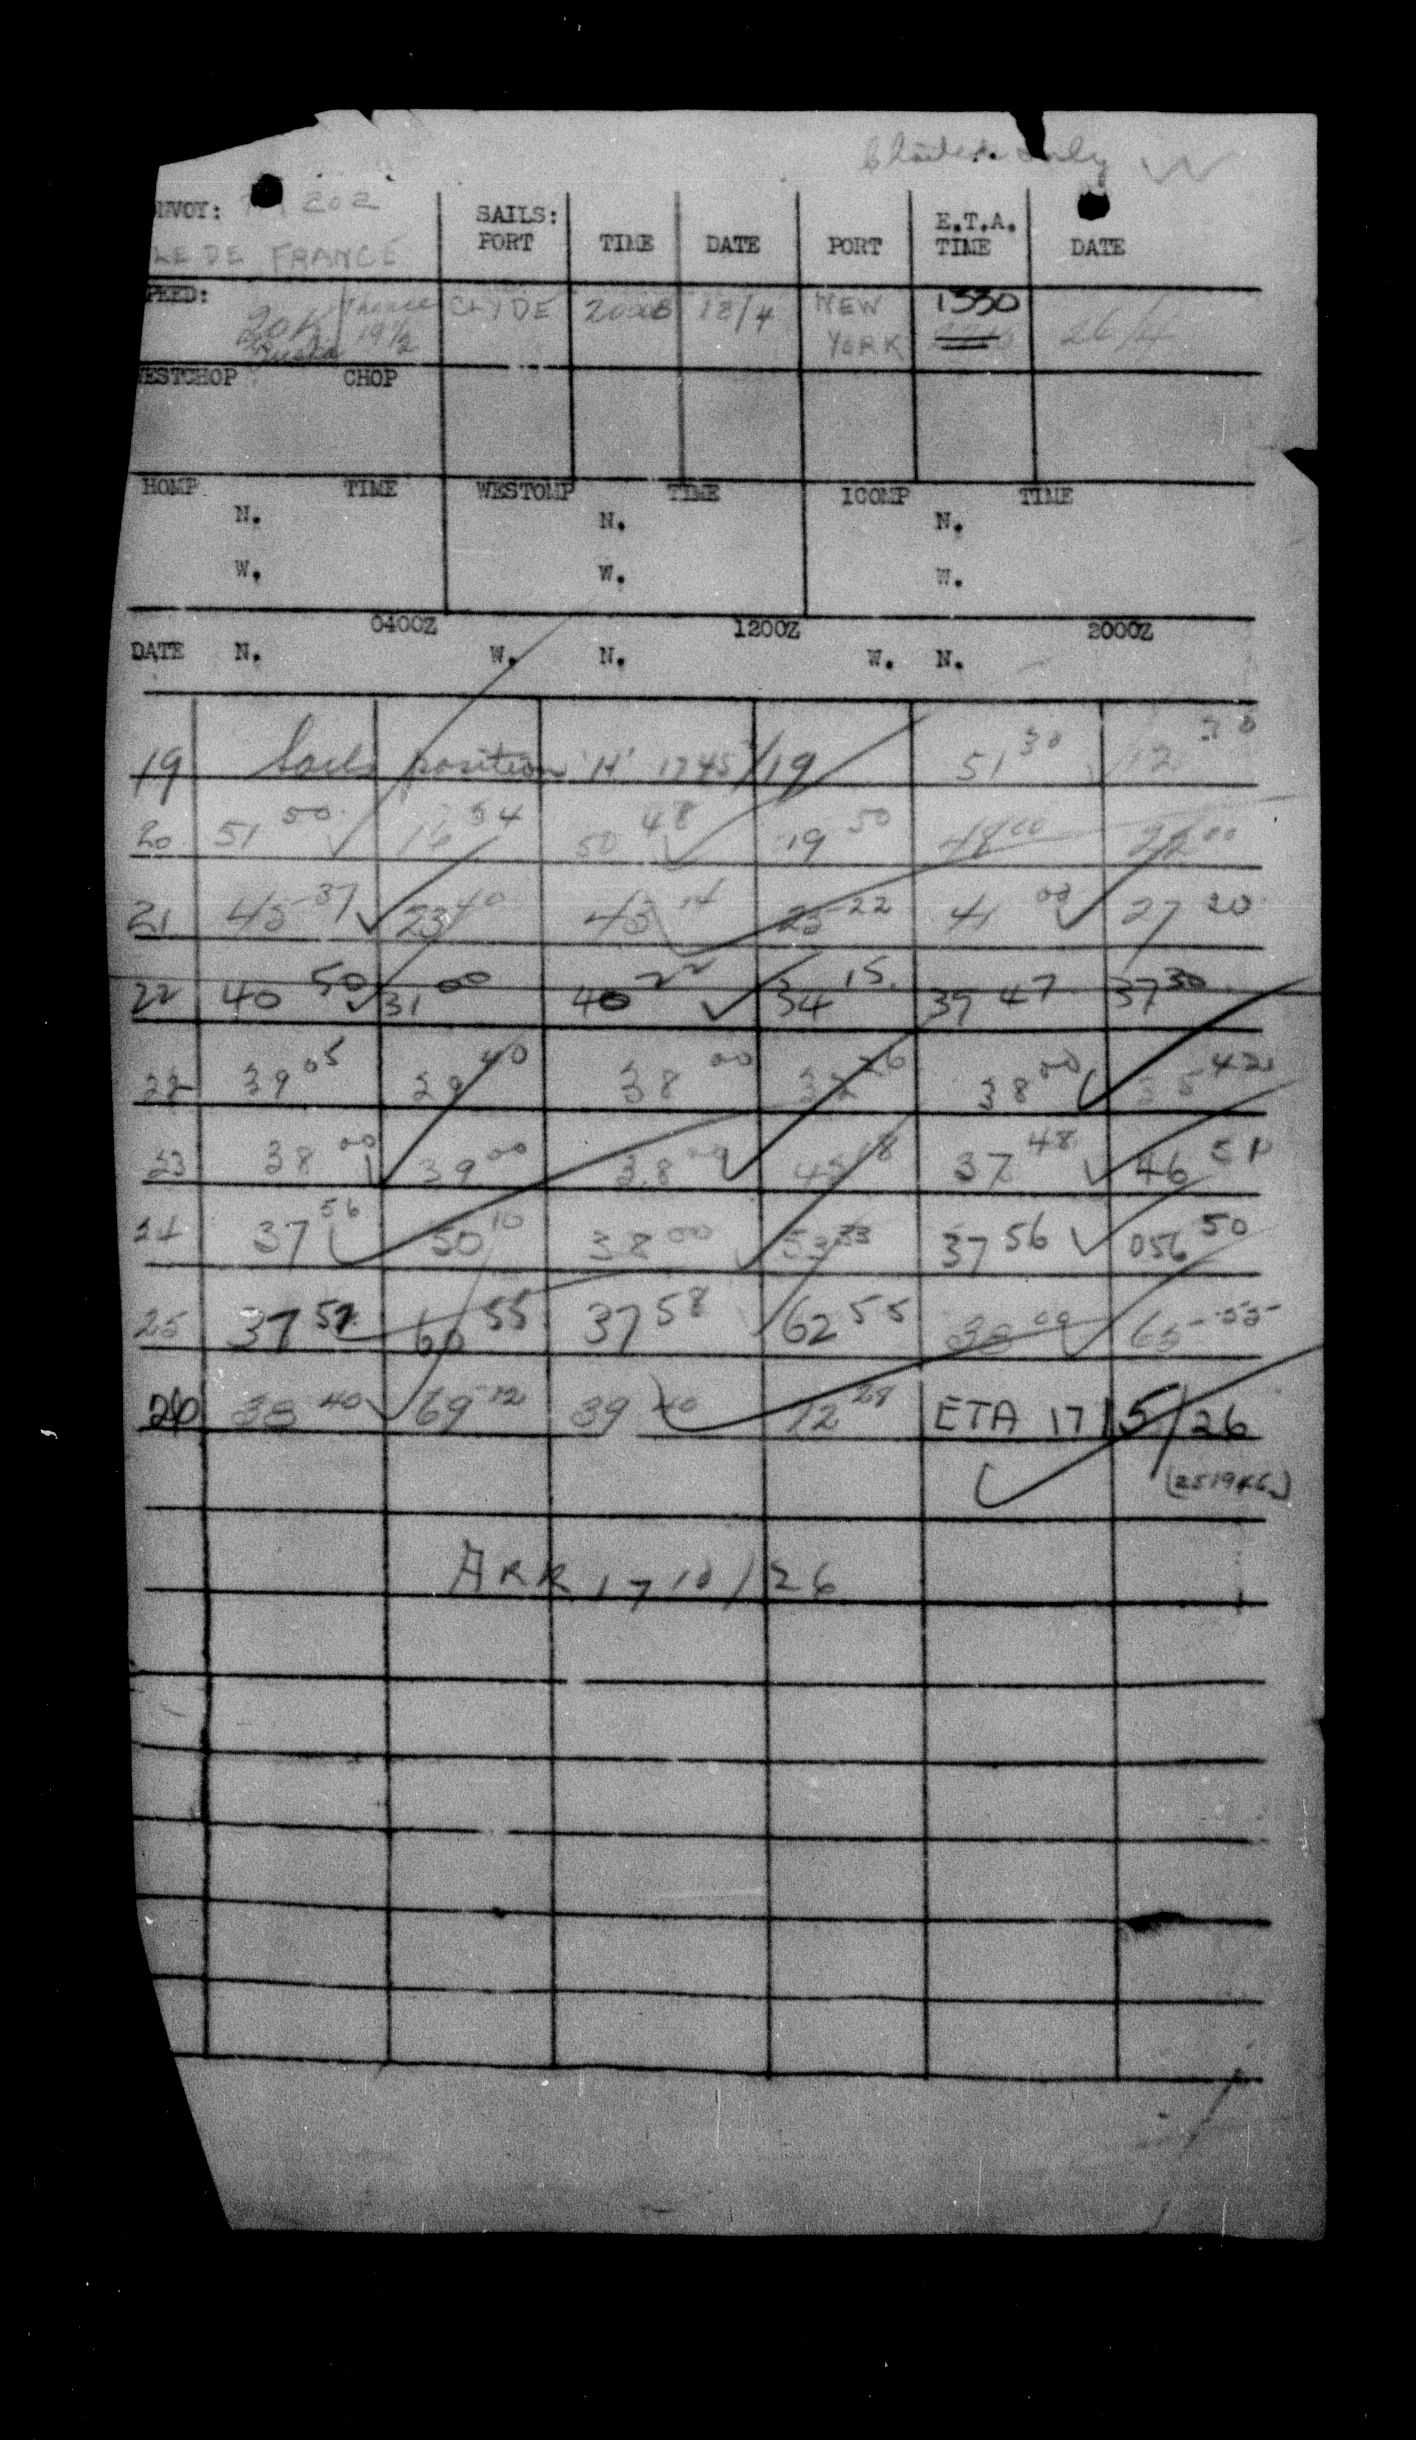 only
NVOY: 202 SAILS: E.T.A.
LE DE FRANCE PORT TIME DATE PORT TIME DATE
PEED: 20k / thence 19½ CLYDE 2000B 18/4 NEW YORK 1330 26/4
WESTCHOP CHOP
HOMP TIME WESTOMP TIME ICOMP TIME
N. N. N.
W. W. W.
0400Z 1200Z 2000Z
DATE N. W. N. W. N.
19 Sails position 'H' 1745/19 51 30 12 30
20 51 50 16 34 50 48 19 50 48 00 22 00
21 45 37 23 40 43 14 25 22 41 00 27 20
22 40 50 31 00 40 22 34 15 39 47 37 30
22 39 05 29 40 38 00 32 26 38 00 35 42
23 38 00 39 00 38 00 42 18 37 48 46 51
24 37 56 50 10 38 00 53 33 37 56 056 50
25 37 57 60 55 37 58 62 55 38 00 65 55
26 38 40 69 12 39 40 72 28 ETA 1715/26
(251946)
ARR 1710/26